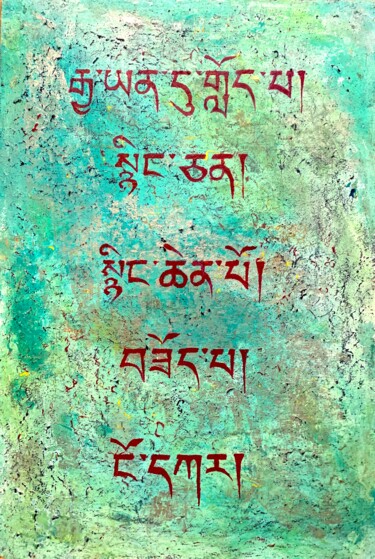 རྒྱ་ཡན་དུ་གློད་པ།
སྙིང་ཅན།
སྙིང་ཆེན་པོ།
བཟོད་པ།
ངོ་དཀར།